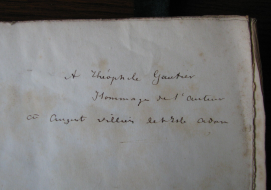 A Théophile Gautier
Hommage de l'auteur
Villiers de l'Isle Adam